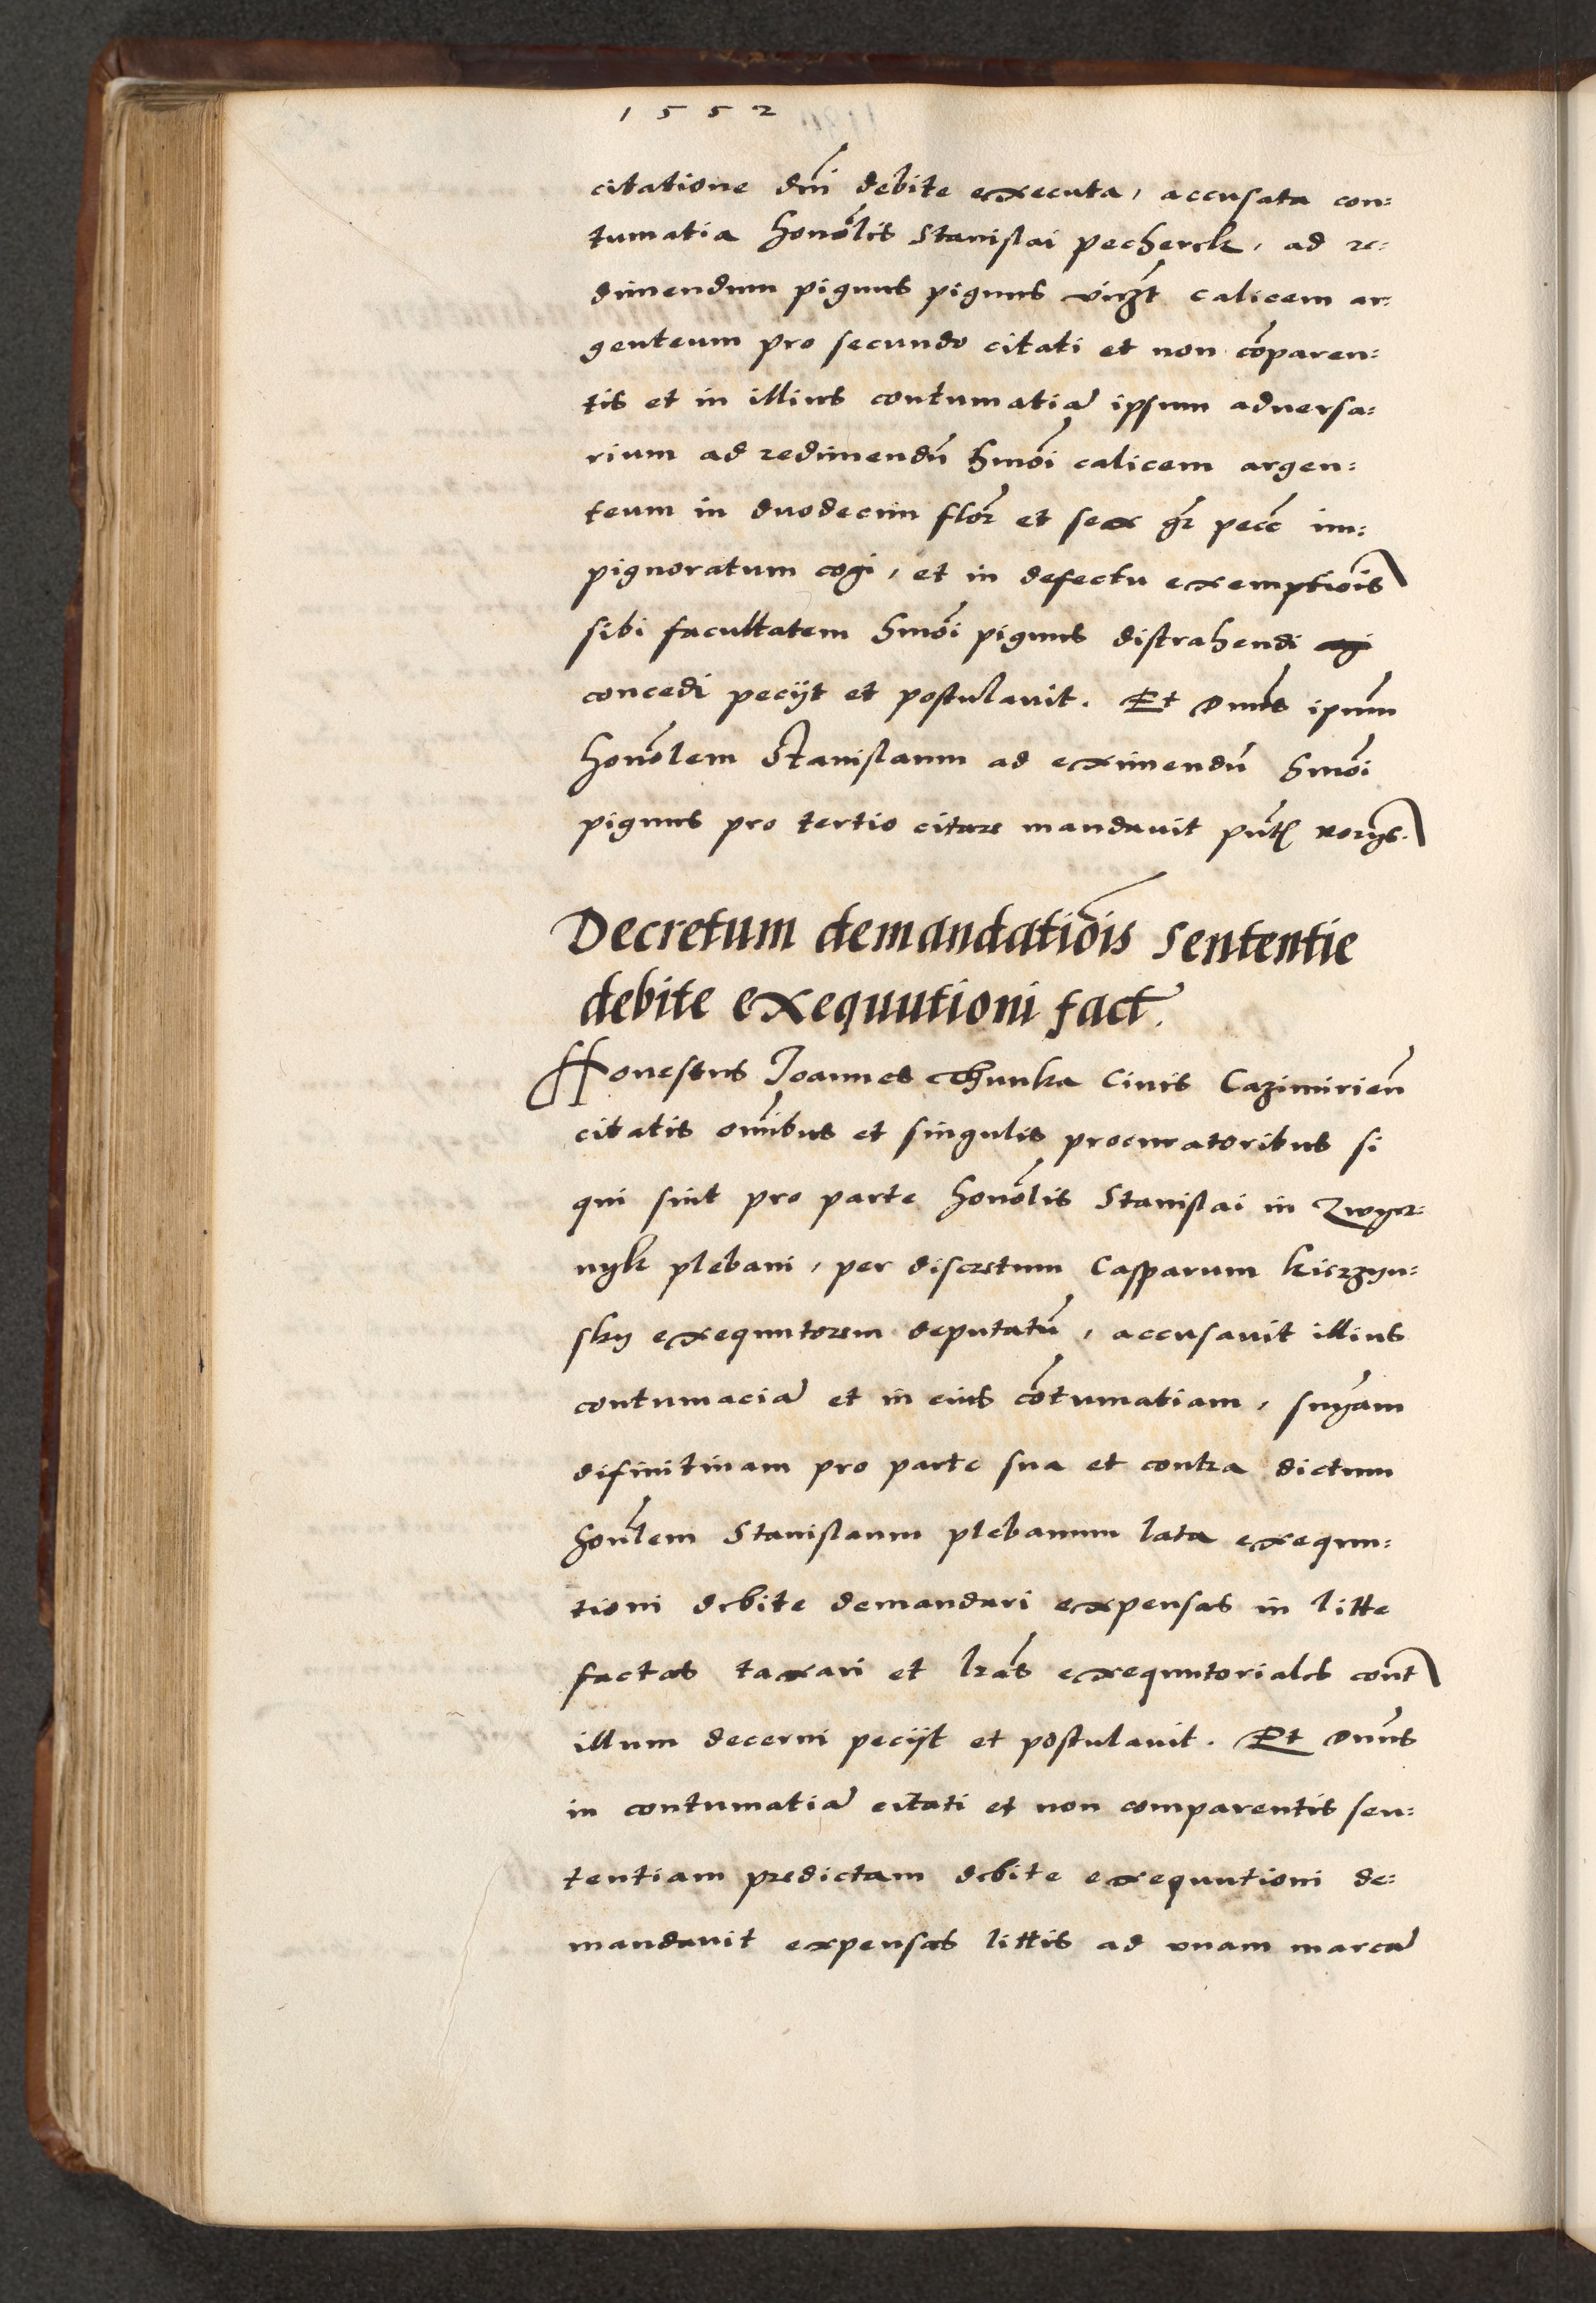 1552
citatione dni debite executa, accusata con=
tumatia honolis Stanislai pecherek, ad re=
dimendum pignus pignus vidzt calicem ar=
genteum pro secundo citati et non coparen=
tis et in illius contumatia ipsum adversa=
rium ad redimendu hmoi calicem argen=
teum in duodecim flor et sex gr pecc im=
pignoratum cogi, et in defectu exemptiois
sibi facultatem hmoi pignus distrahendi
concedi pecijt et postulavit. Et Dnus ipsum
honolem Stanislaum ad eximendu hmoi
pignus pro tertio citare mandavit pntibus
Decretum demandatiois sententie
debite exequutioni fact.
Honestus Joannes Thunka Civis Cazimirien
citatis omibus et singulis procuratoribus si
qui sint pro parte honolis Stanislai in Zwyer=
nyk plebani, per discretum Casparum kierzyn=
sky exequutorem deputatu, accusavit illius
contumacia et in eius cotumatiam, snyam
difinitivam pro parte sua et contra dictum
honlem Stanislaum plebanum lata exequu=
tioni debite demandari expensas in litte
factas taxari et lras exequutoriales cont
illum decerni pecijt et postulavit. Et Dnus
in contumatia citati et non comparentis sen=
tentiam predictam debite exequutioni de=
mandavit expensas littis ad unam marca